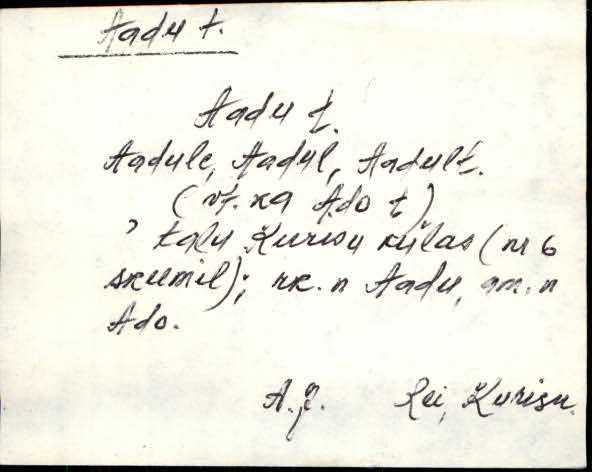 Aadu t.
Aadu t.
Aadule, Aadul, Aadult.
(vt. ka Ado t)
, talu Kurisu külas (nr 6
skeemil); rk. n Aadu, am. n
Ado.
A.J. Rei, Kurisu.